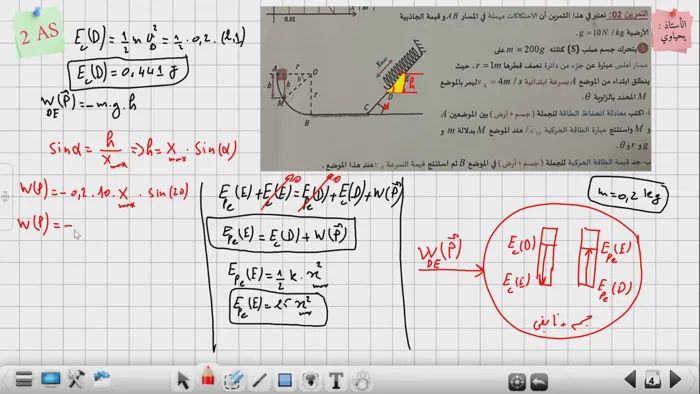 2 AS
E_c(D) = 1/2 m v_D² = 1/2 · 0,2 · (2,1)
E_c(D) = 0,441 J
W_DE(P⃗) = -m.g.h
sin α = h/x_max => h = x_max · sin(α)
W(P) = -0,2 · 10 · x_max · sin(20)
W(P) = -
0,01
التمرين 02: نعتبر في هذا التمرين أن الاحتكاكات مهملة في المسار AB و قيمة الجاذبية
الأرضية g = 10N / kg.
يتحرك جسم صلب (S) كتلته m = 200g على
مسار أملس عبارة عن جزء من دائرة نصف قطرها r = 1m. حيث
ينطلق ابتدءا من الموضع A بسرعة ابتدائية v_A = 4m / s ليمر بالموضع
M المحدد بالزاوية θ.
1- اكتب معادلة انحفاظ الطاقة للجملة (جسم + أرض) بين الموضعين A
و M واستنتج عبارة الطاقة الحركية Ec_M عند الموضع M بدلالة m و
g و r و θ.
ب- جد قيمة الطاقة الحركية للجملة (جسم + أرض) في الموضع B ثم استنتج قيمة السرعة عند هذا الموضع.
A
r
O
h
M
r
B
C
D
E
h
x_max
الأستاذ :
يحياوي
E_pe(E) + E_c(E) = E_pe(D) + E_c(D) + W(P⃗)
E_pe(E) = E_c(D) + W(P⃗)
E_pe(E) = 1/2 k · x²_max
E_pe(E) = 25 x²_max
m = 0,2 kg
W_DE(P⃗)
E_c(D)
E_c(E)
E_pe(E)
E_pe(D)
جسم + نابض
4